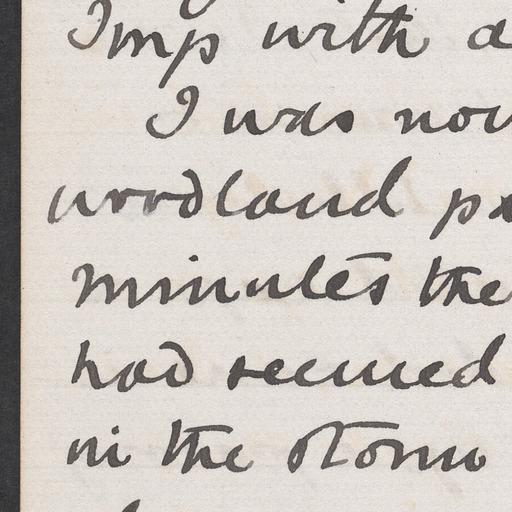 Imp with a
I was now
woodland pa
minutes the
had seemed
in the storm